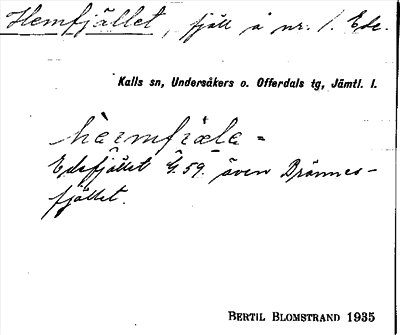 Hemfjället, fjäll å nr. 1. Ede.
Kalls sn, Undersåkers o. Offerdals tg, Jämtl. l.
hæ̀rmfjæ̀la =
Edefjället G. 59. även Brännes-
fjället.
BERTIL BLOMSTRAND 1935